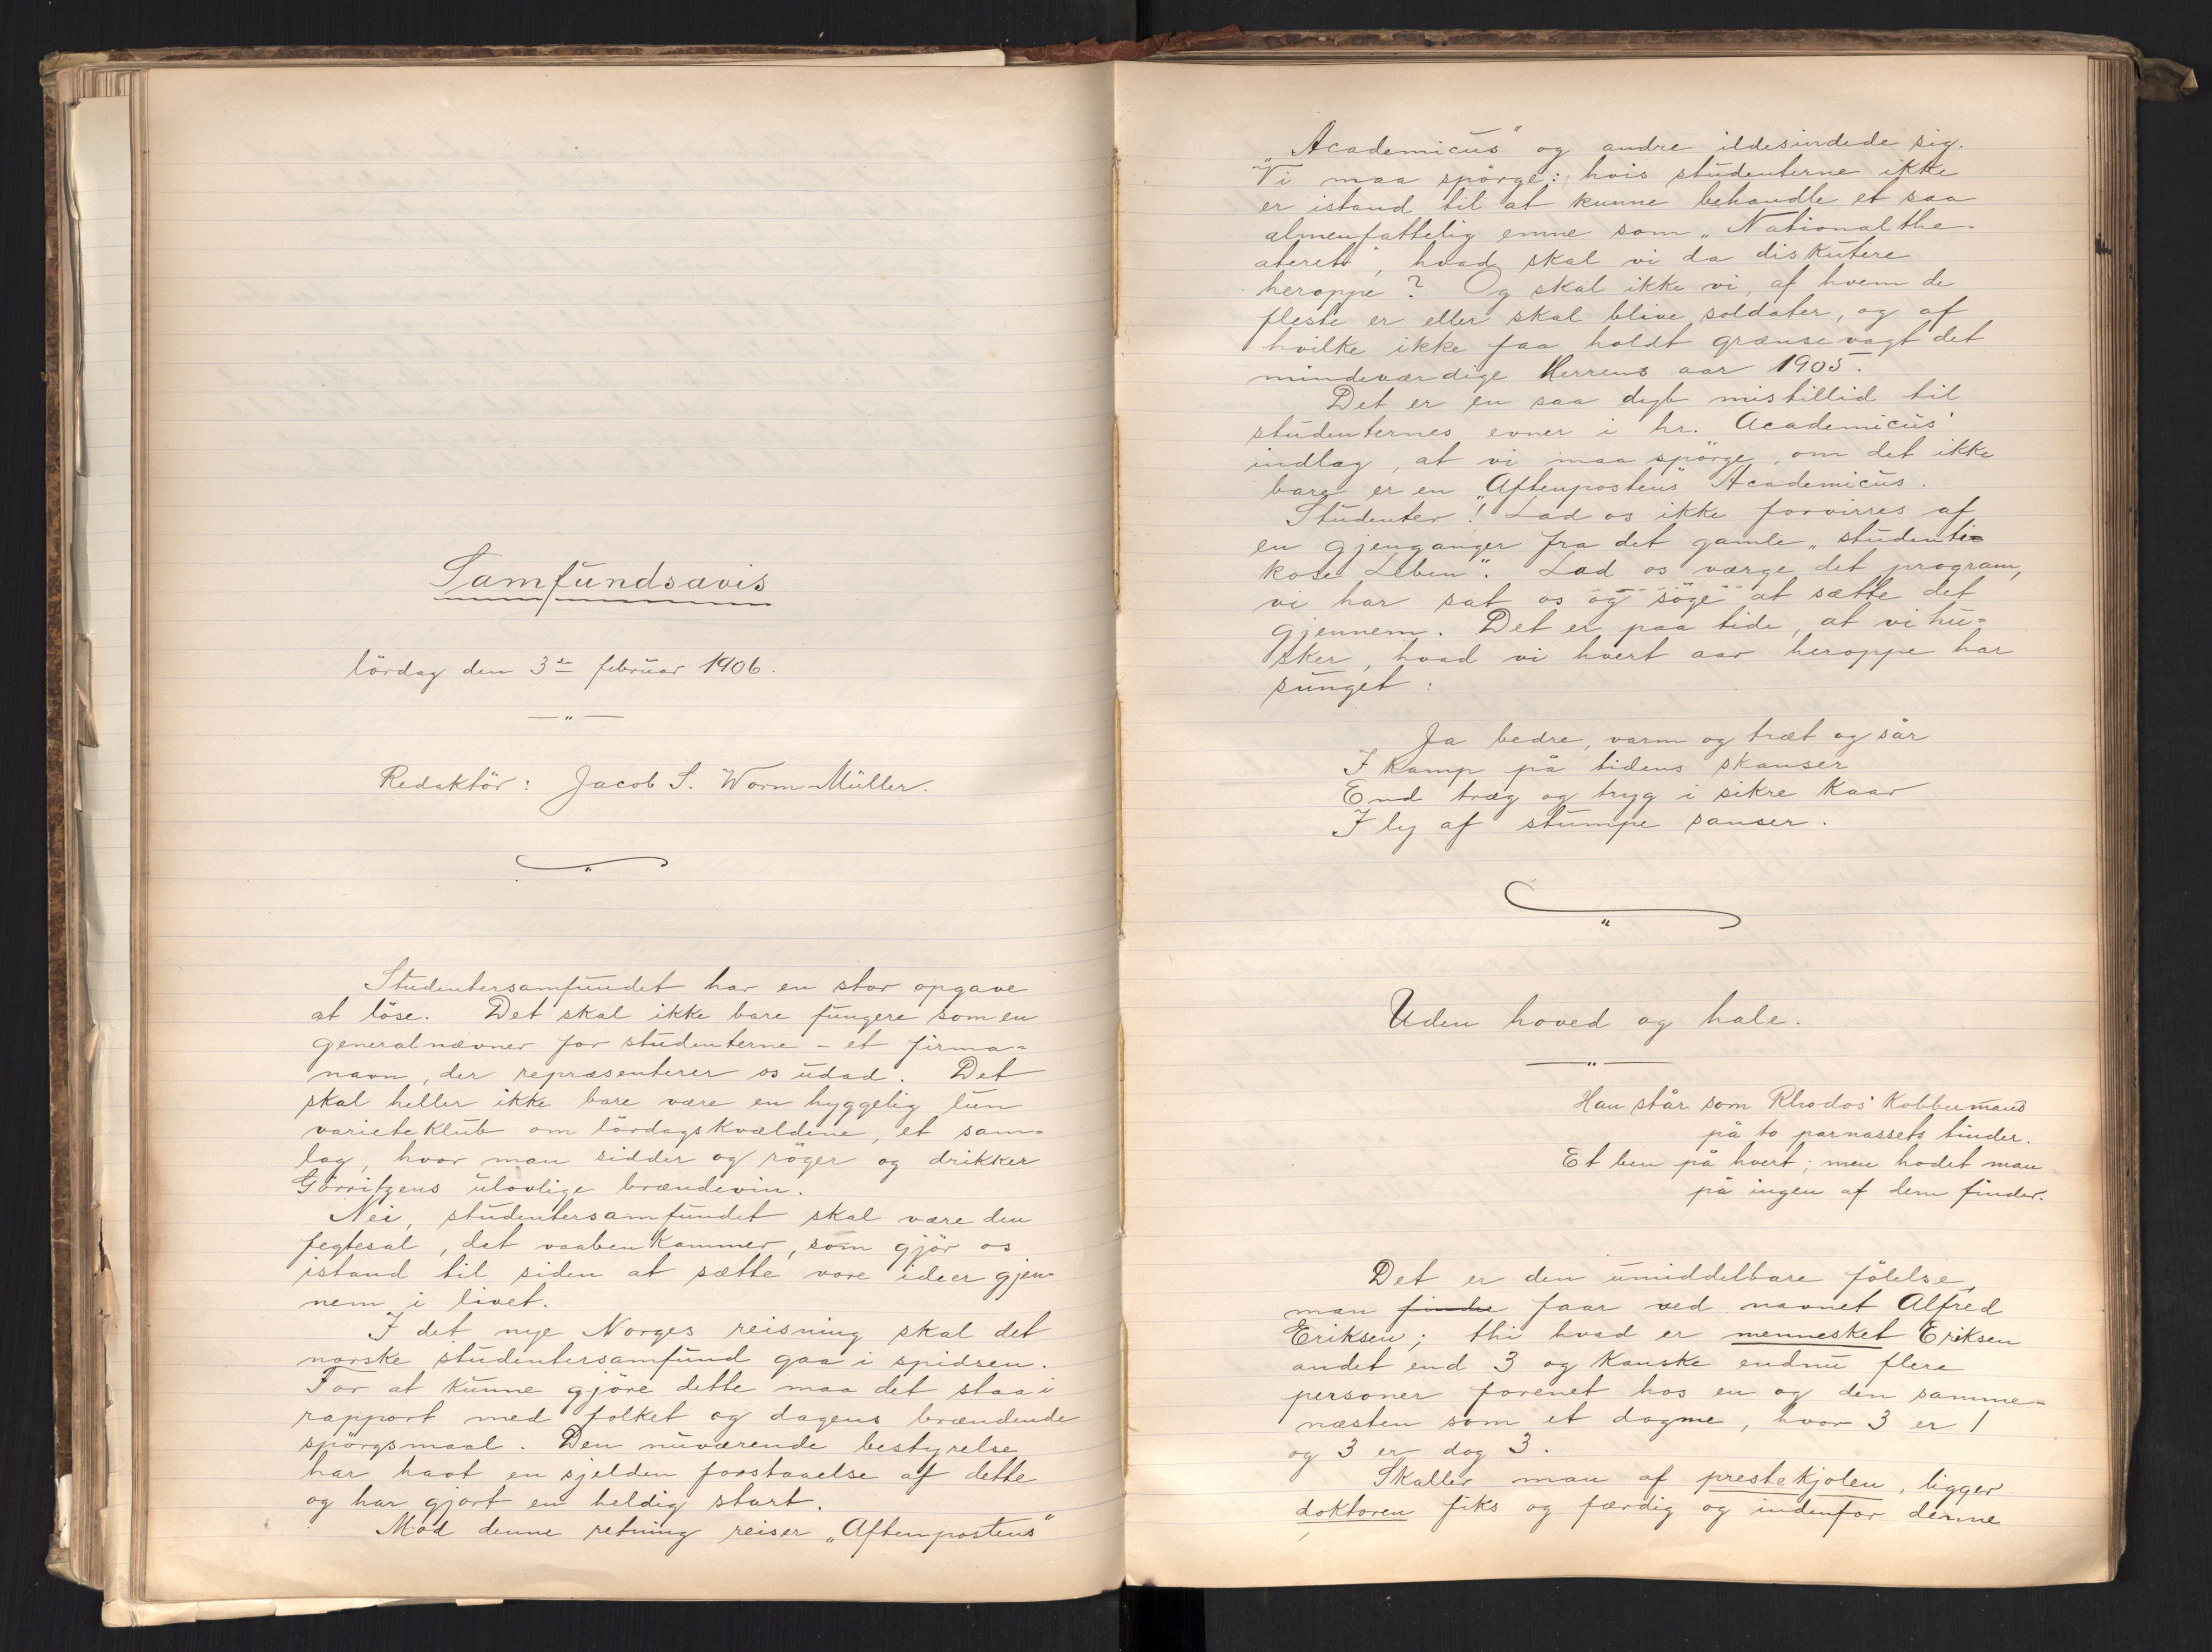 Samfundsavis
lördag den 3de februar 1906.
Redaktör: Jacob S. Worm-Müller.
Studentersamfundet har en stor opgave
at löse. Det skal ikke bare fungere som en
generalnævner for studenterne – et firma-
navn, der repræsenterer os udad. Det
skal heller ikke bare være en hyggelig lun
varieteklub om lördagskvældene, et sam-
lag, hvor man sidder og röger og drikker
Görritzens ulovlige brændevin.
Nei, studentersamfundet skal være den
fegtesal, det vaabenkammer, som gjör os
istand til siden at sætte vore ideer gjen-
nem i livet.
I det nye Norges reisning skal det
norske studentersamfund gaa i spidsen.
For at kunne gjöre dette maa det staa i
rapport med folket og dagens brændende
spörgsmaal. Den nuværende bestyrelse
har havt en sjelden forstaaelse af dette
og har gjort en heldig start.
Mod denne retning reiser „Aftenpostens"
„Academicus" og andre ildesindede sig.
Vi maa spörge: hvis studenterne ikke
er istand til at kunne behandle et saa
almenfattelig emne som „Nationalthe-
ateret", hvad skal vi da diskutere
heroppe? Og skal ikke vi, af hvem de
fleste er eller skal blive soldater, og af
hvilke ikke faa holdt grænsevagt det
mindeværdige Herrens aar 1905.
Det er en saa dyb mistillid til
studenternes evner i hr. Academicus'
indlæg, at vi maa spörge, om det ikke
bare er en „Aftenpostens" Academicus.
Studenter! Lad os ikke forvirres af
en gjenganger fra det gamle „studenti-
kose Leben". Lad os værge det program,
vi har sat os og söge at sætte det
gjennem. Det er paa tide, at vi hu-
sker, hvad vi hvert aar heroppe har
sunget:
Ja bedre, varm og træt og sår
I kamp på tidens skanser
End træg og tryg i sikre kaar
I ly af stumpe sanser.
Uden hoved og hale.
Han står som Rhodos' Kobbermand
på to parnassets tinder.
Et ben på hvert; men hodet man
på ingen af dem finder.
Det er den umiddelbare fölelse,
man finder faar ved navnet Alfred
Eriksen; thi hvad er mennesket Eriksen
andet end 3 og kanske endnu flere
personer forenet hos en og den samme-
næsten som et dogme, hvor 3 er 1
og 3 er dog 3.
Skaller man af prestekjolen, ligger
doktoren fiks og færdig og indenfor denne